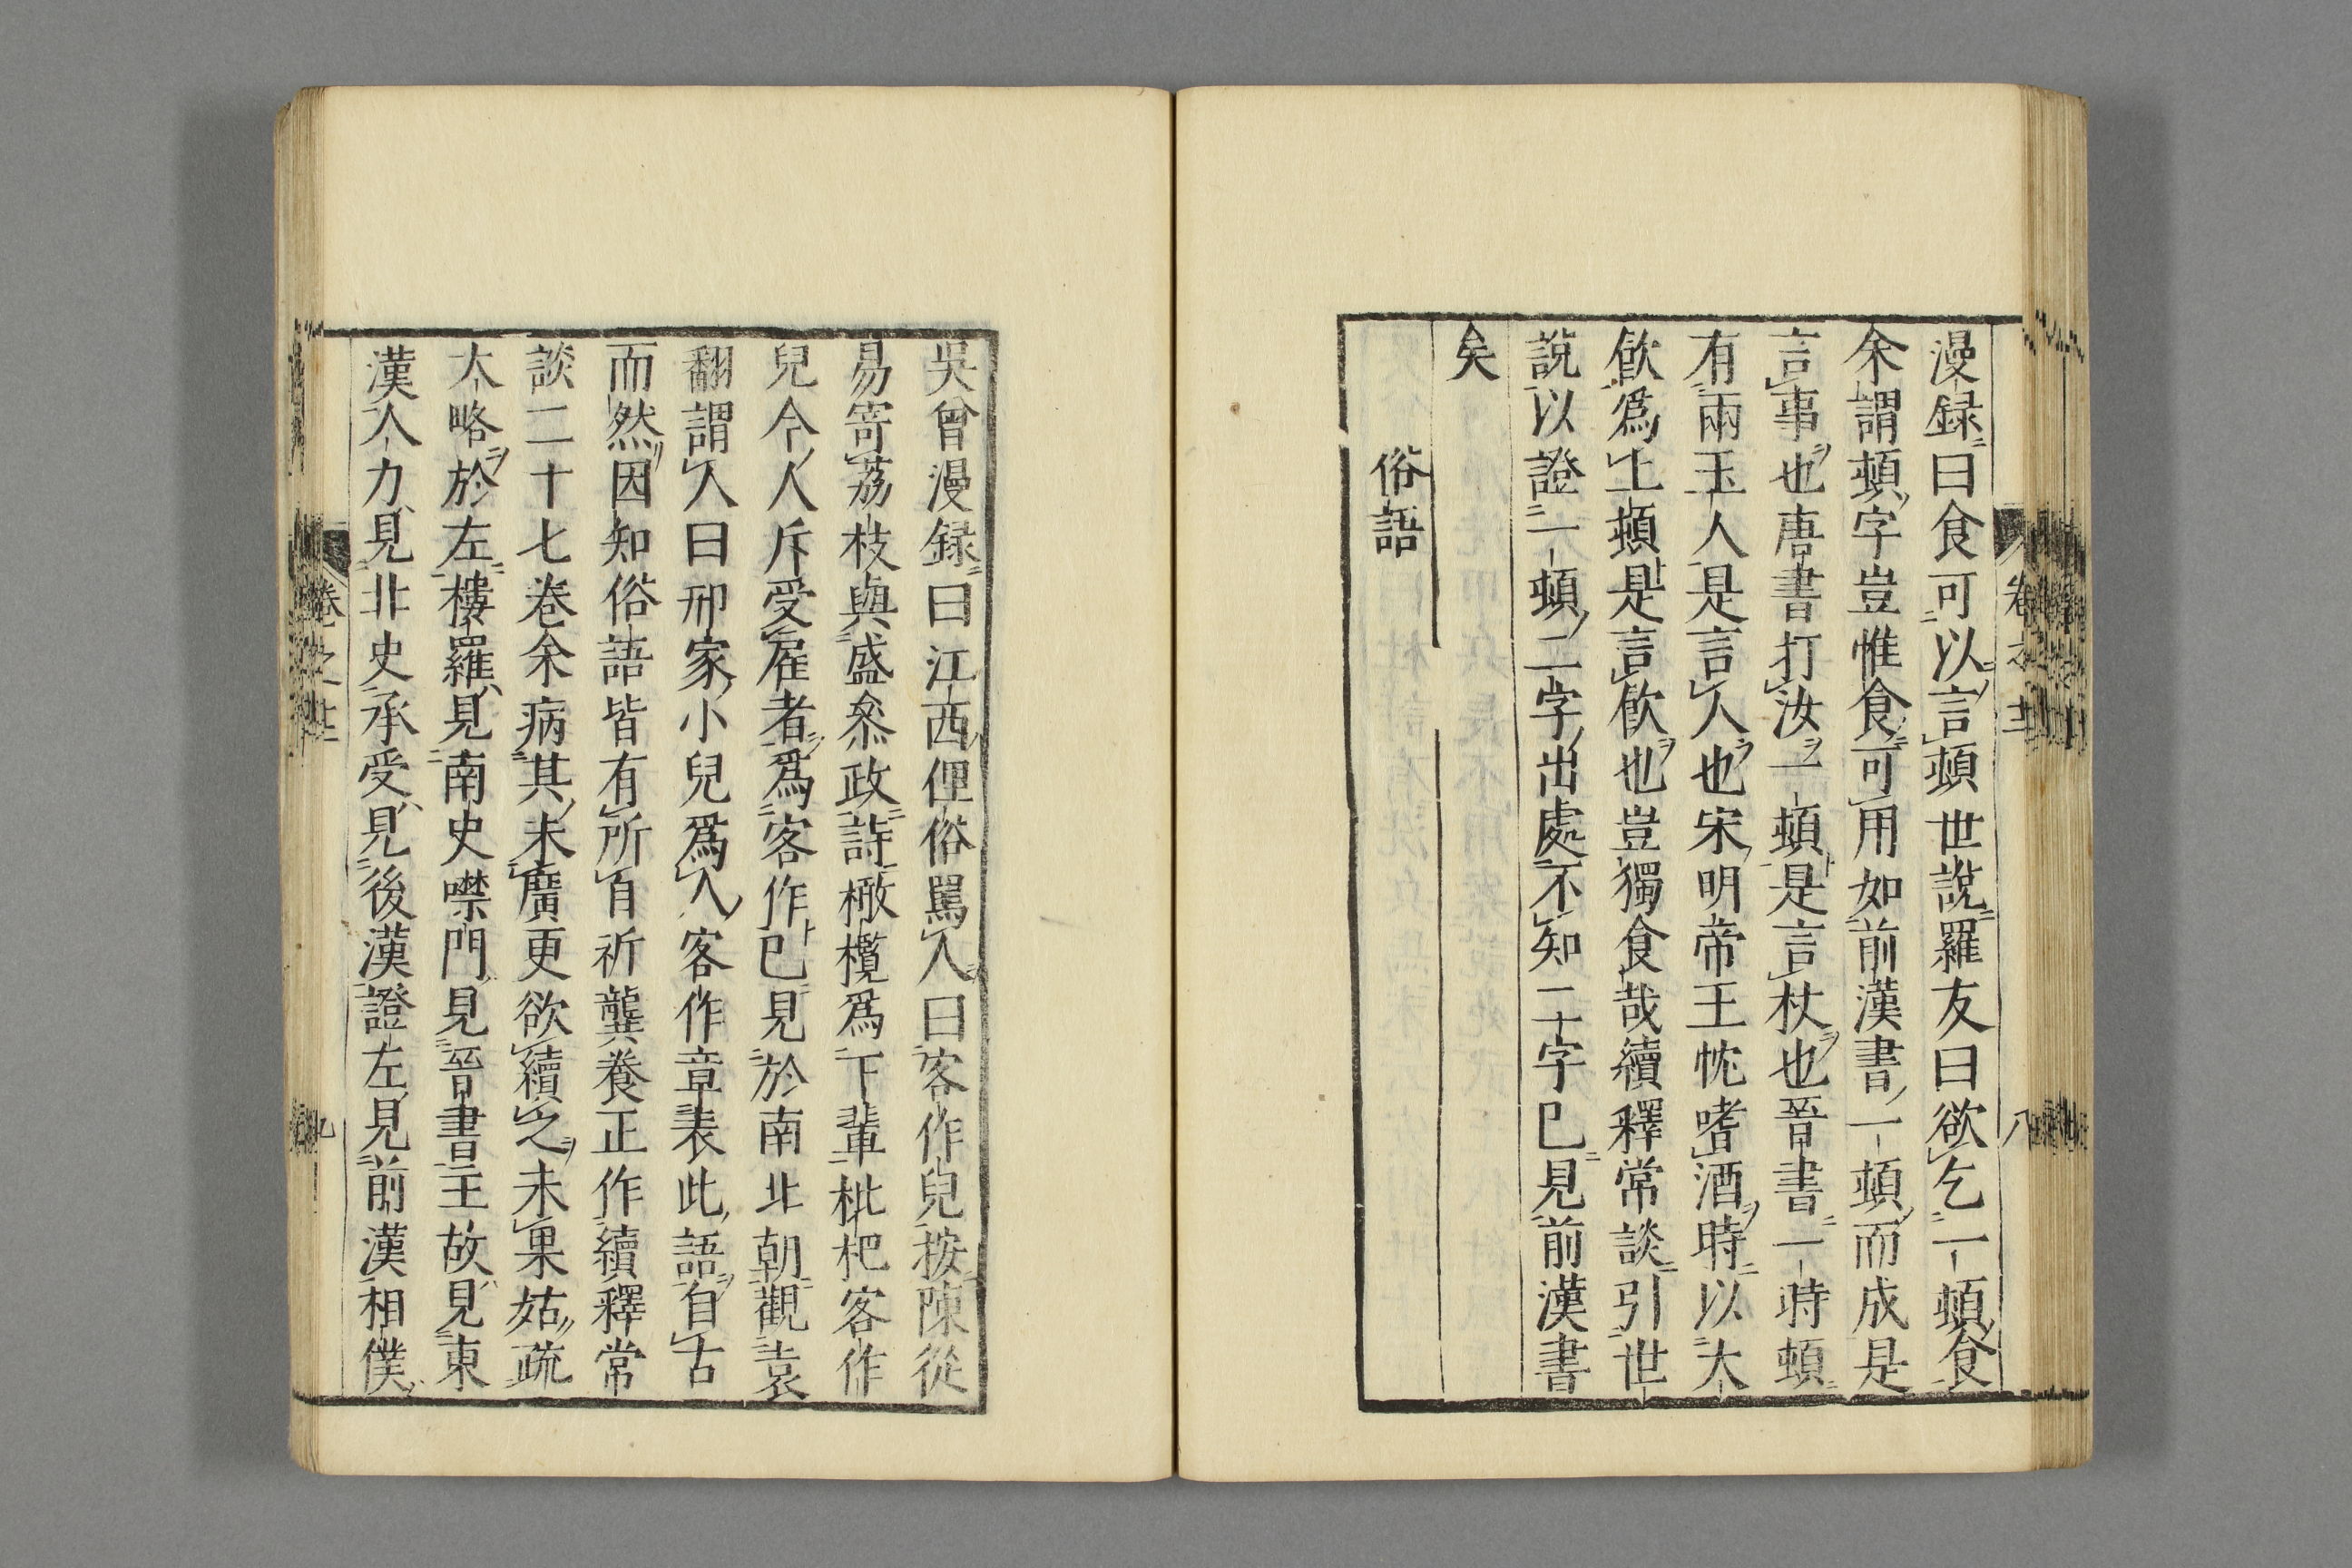 漫録曰食可以言頓世說羅友曰欲乞一頓食
余謂頓字豈惟食可用如前漢書一頓而成是
言事也唐書打汝一頓是言杖也晉書一時頓
有兩玉人是言人也宋明帝王忱嗜酒時以大
飲爲上頓是言飲也豈獨食哉續釋常談引世
說以證一頓二字出處不知二字已見前漢書
矣
俗語
吳曾漫録曰江西俚俗罵人曰客作兒按陳從
易寄荔枝與盛叅政詩橄欖爲下輩枇杷客作
兒今人斥受雇者爲客作已見於南北朝觀袁
翻謂人曰邢家小兒爲人客作章表此語自古
而然因知俗語皆有所自祈龔養正作續釋常
談二十七卷余病其未廣更欲續之未果姑疏
大略於左樓羅見南史噤門見晉書主故見東
漢人力見北史承受見後漢證左見前漢相僕
卷之廿二
九
八